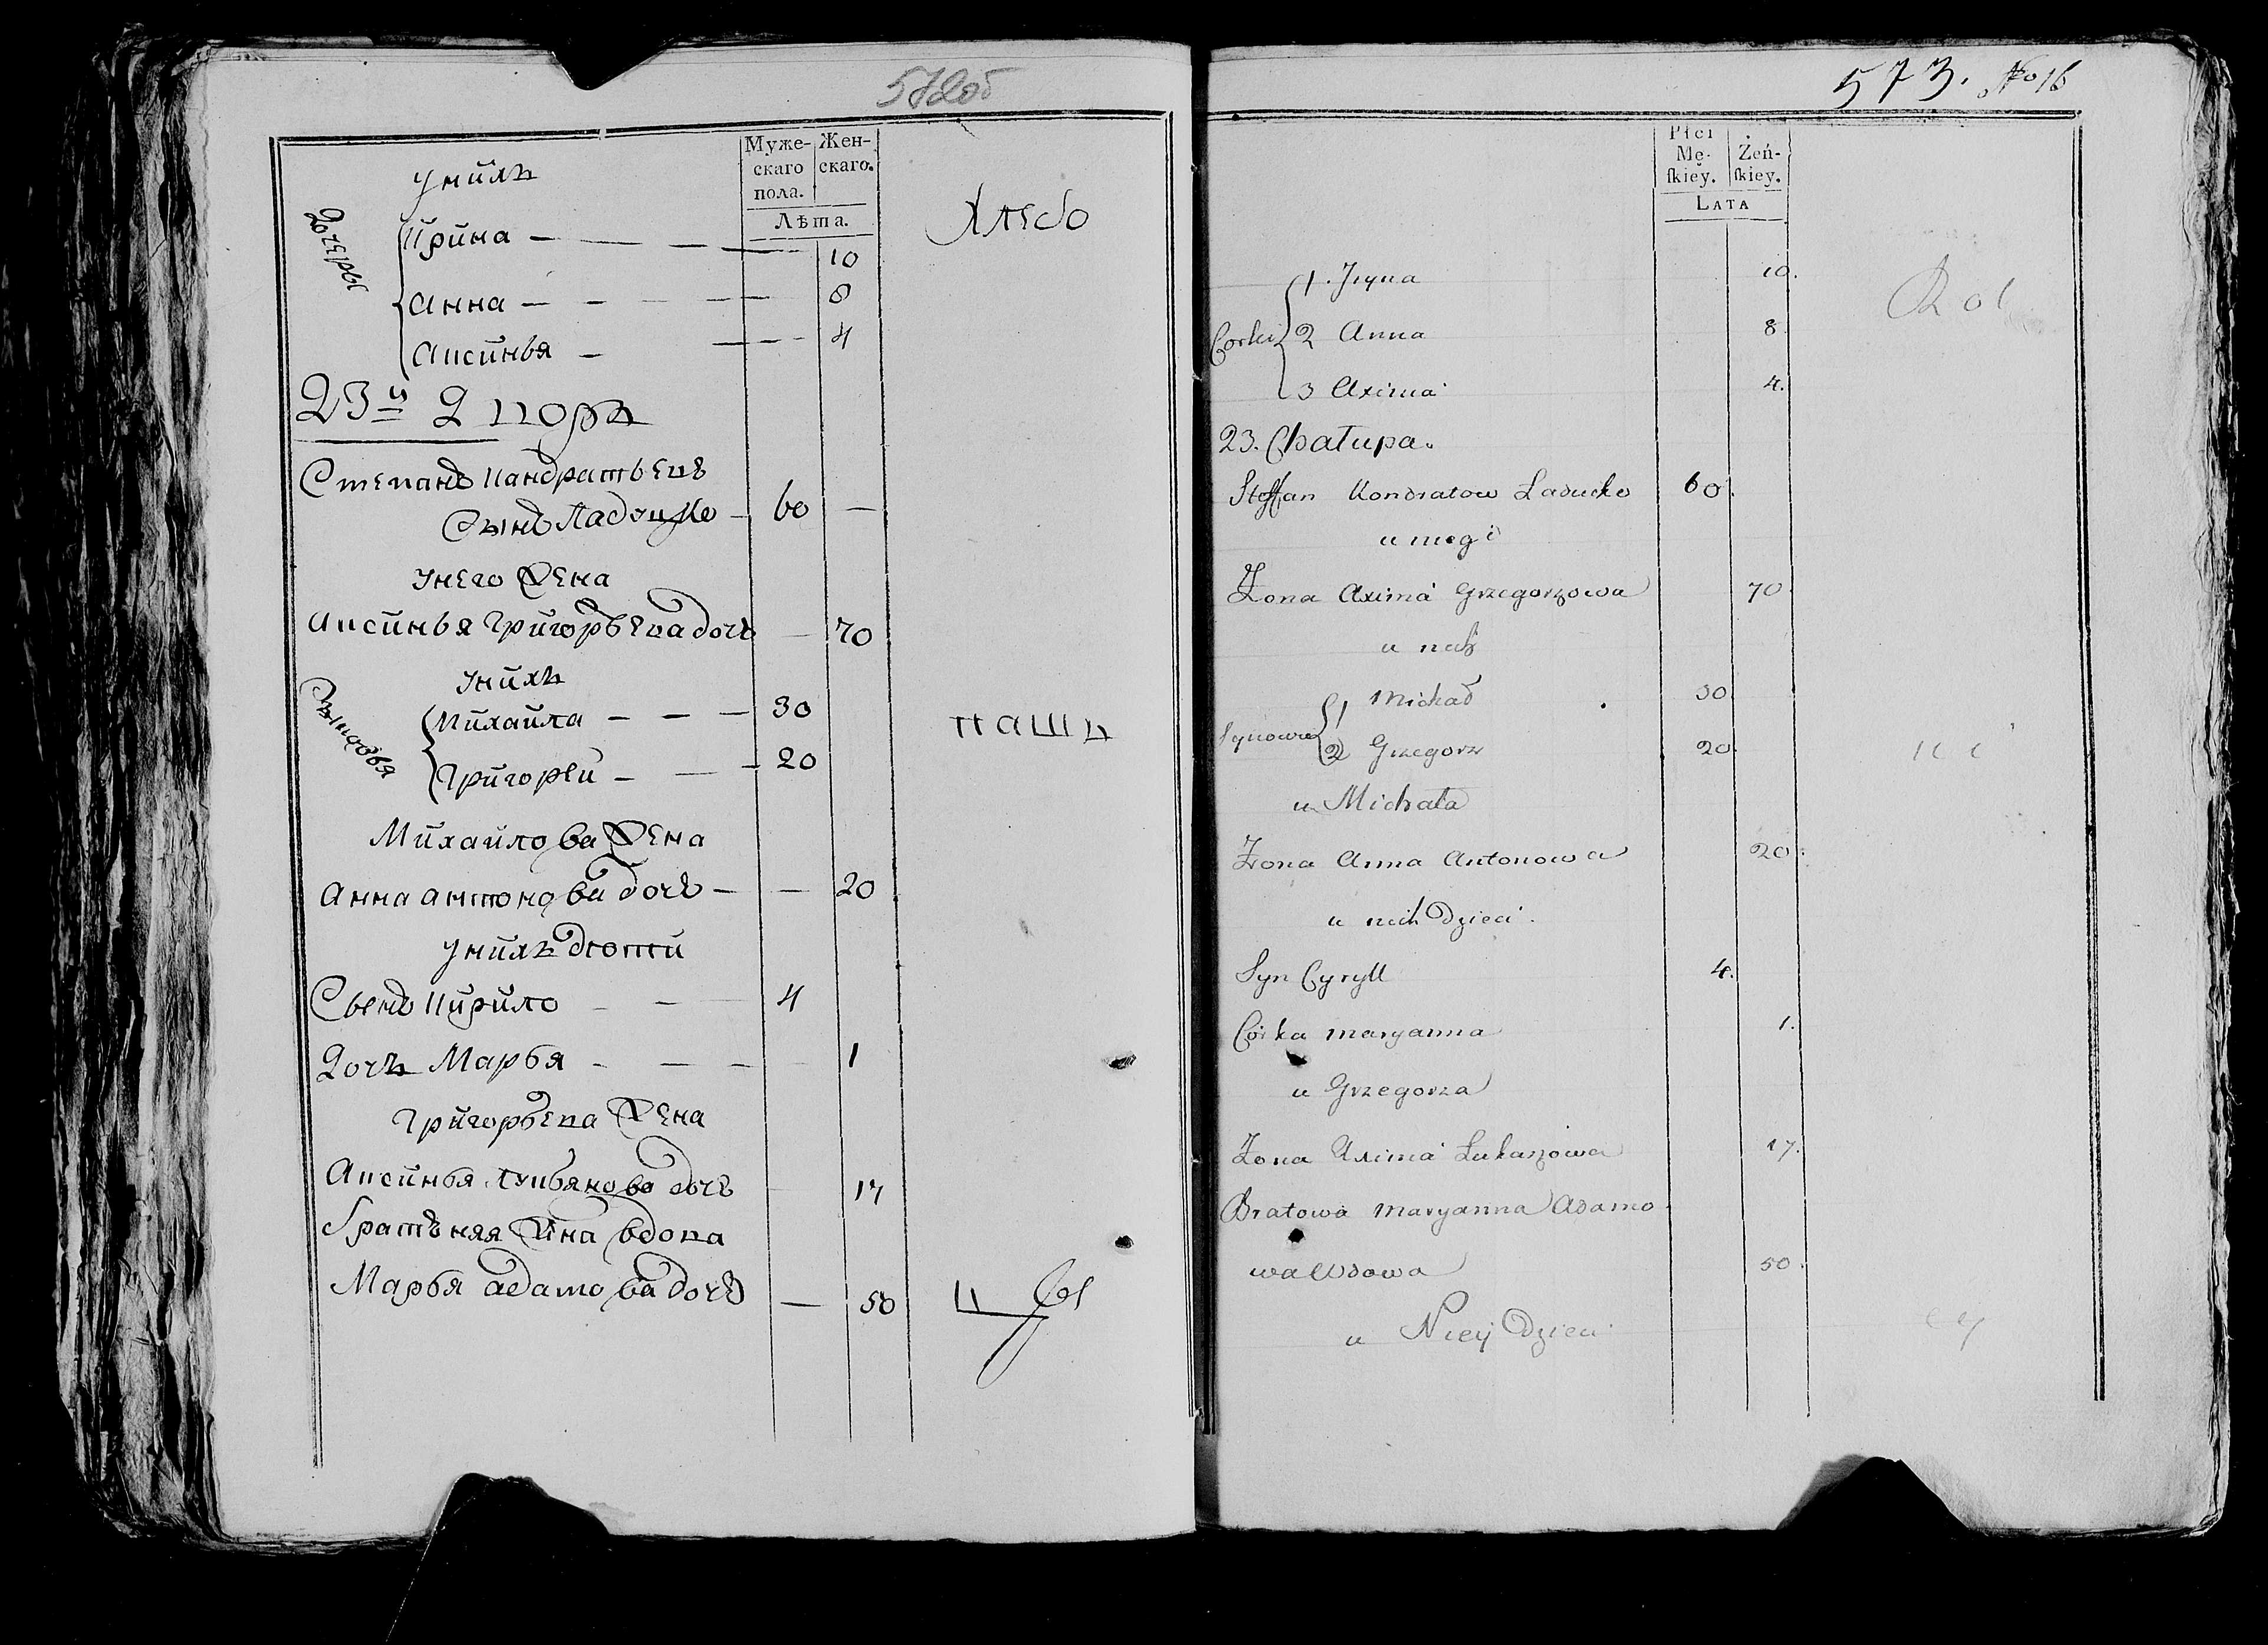 572об
Муже- Жен-
скаго скаго.
пола.
Лѣта.
унихъ
Дочери
Ирина — — — — 10
Анна — — — — 8
Аксинья — — — 4
Хлебо
23й Дворъ
Степанъ Кандратьевъ
Сынъ Ладуцко — 60 —
унего жена
Аксинья Григорьева дочь — 70
унихъ
Сыновья
Михайла — — — 30
Григорей — — — 20
пашц
Михайлова жена
Анна антонова дочь — — 20
унихъ дети
Сынъ Кирило — — 4
Дочь Марья — — — — 1
Григорьева жена
Аксинья Лукьянова дочь 17
Братьняя жина вдова
Марья адамова дочь — 50
573. No 16
Płci
Mę- Żeń-
ſkiey. ſkiey.
LATA
1. Jryna 10.
Corki 2 Anna 8.
3 Axinia 4.
23. Chałupa.
Steffan Kondratow Laducko 60.
u niego
Żona Axinia Grzegorzowa 70.
u nich
Synowie 1 Michał 30.
2 Grzegorz 20.
u Michała
Żona Anna Antonowa 20.
u nich Dzieci.
Syn Cyryll 4.
Córka Maryanna 1.
u Grzegorza
Żona Axinia Lukaszowa 17.
Bratowa Maryanna Adamo-
wa Wdowa 50.
u Niey Dzieci